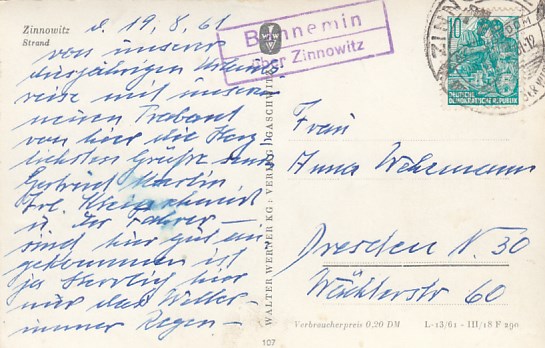 Zinnowitz
Strand
d. 19.8.61
von unserer
diesjährigen Urlaubs
reise mit unserem
neuen Trabant
von hier die herz
lichsten Grüße
Gertrud
Frl.
u. der Fahrer —
sind hier gut ein
gekommen ist
ja herrlich hier
nur das Wetter —
immer Regen —
Bannemin
über Zinnowitz
WALTER WERNER KG · VERLAG
10
DEUTSCHE
DEMOKRATISCHE REPUBLIK
ZINN
Frau
Anna
Dresden N. 30
Wächterstr 60
Verbraucherpreis 0,20 DM
L-13/61 - III/18 F 290
107